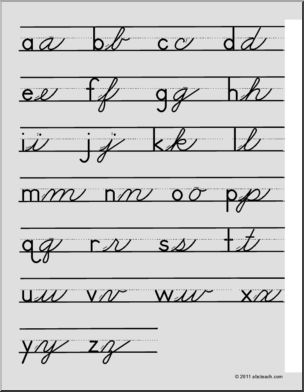 a a b b c c d d
e e f f g g h h
i i j j k k l l
m m n n o o p p
q q r r s s t t
u u v v w w x x
y y z z
© 2011 abcteach.com